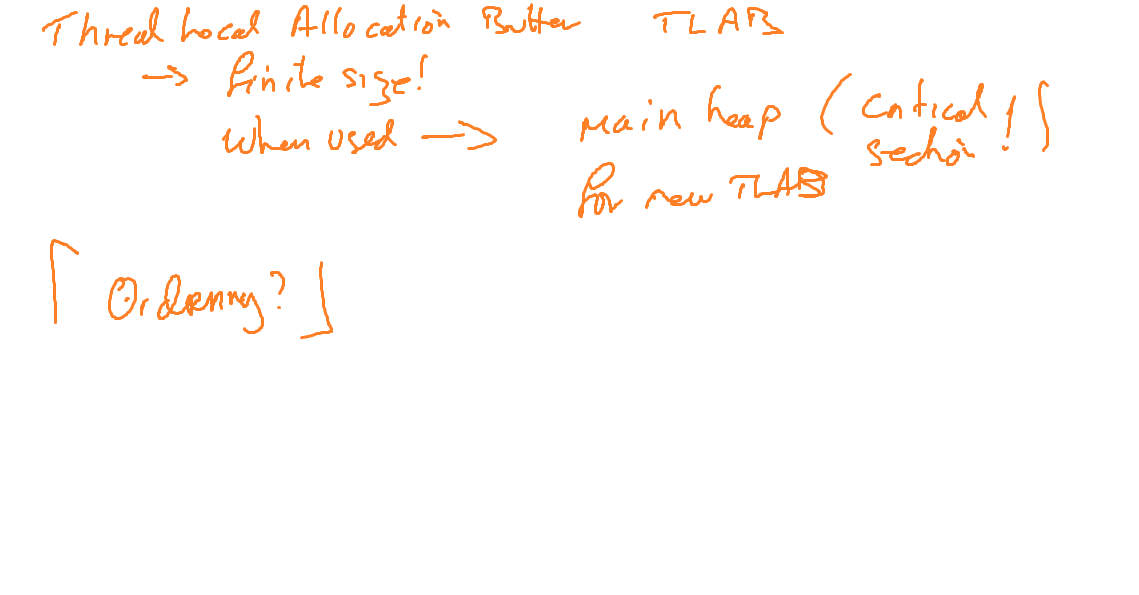 Thread Local Allocation Buffer TLAB
→ finite size!
When used → main heap (critical section!)
for new TLAB
[Ordering?]